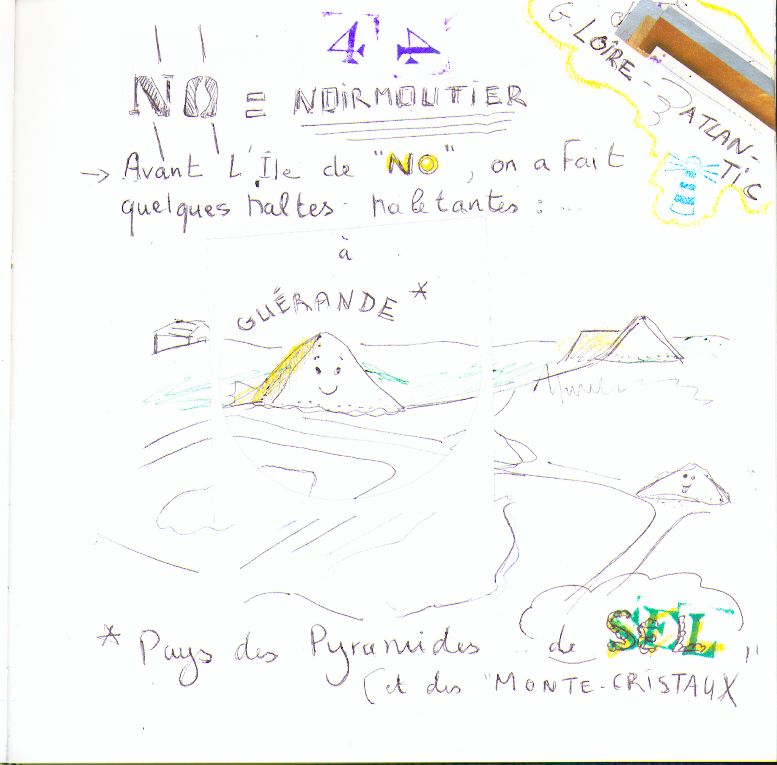 44
G-LOIRE-
ATLAN-
TIC
NO = NOIRMOUTIER
→ Avant L'Île de "NO", on a fait
quelques haltes haletantes : ...
à
GUÉRANDE *
* Pays des Pyramides de SEL "
(et des "MONTE-CRISTAUX